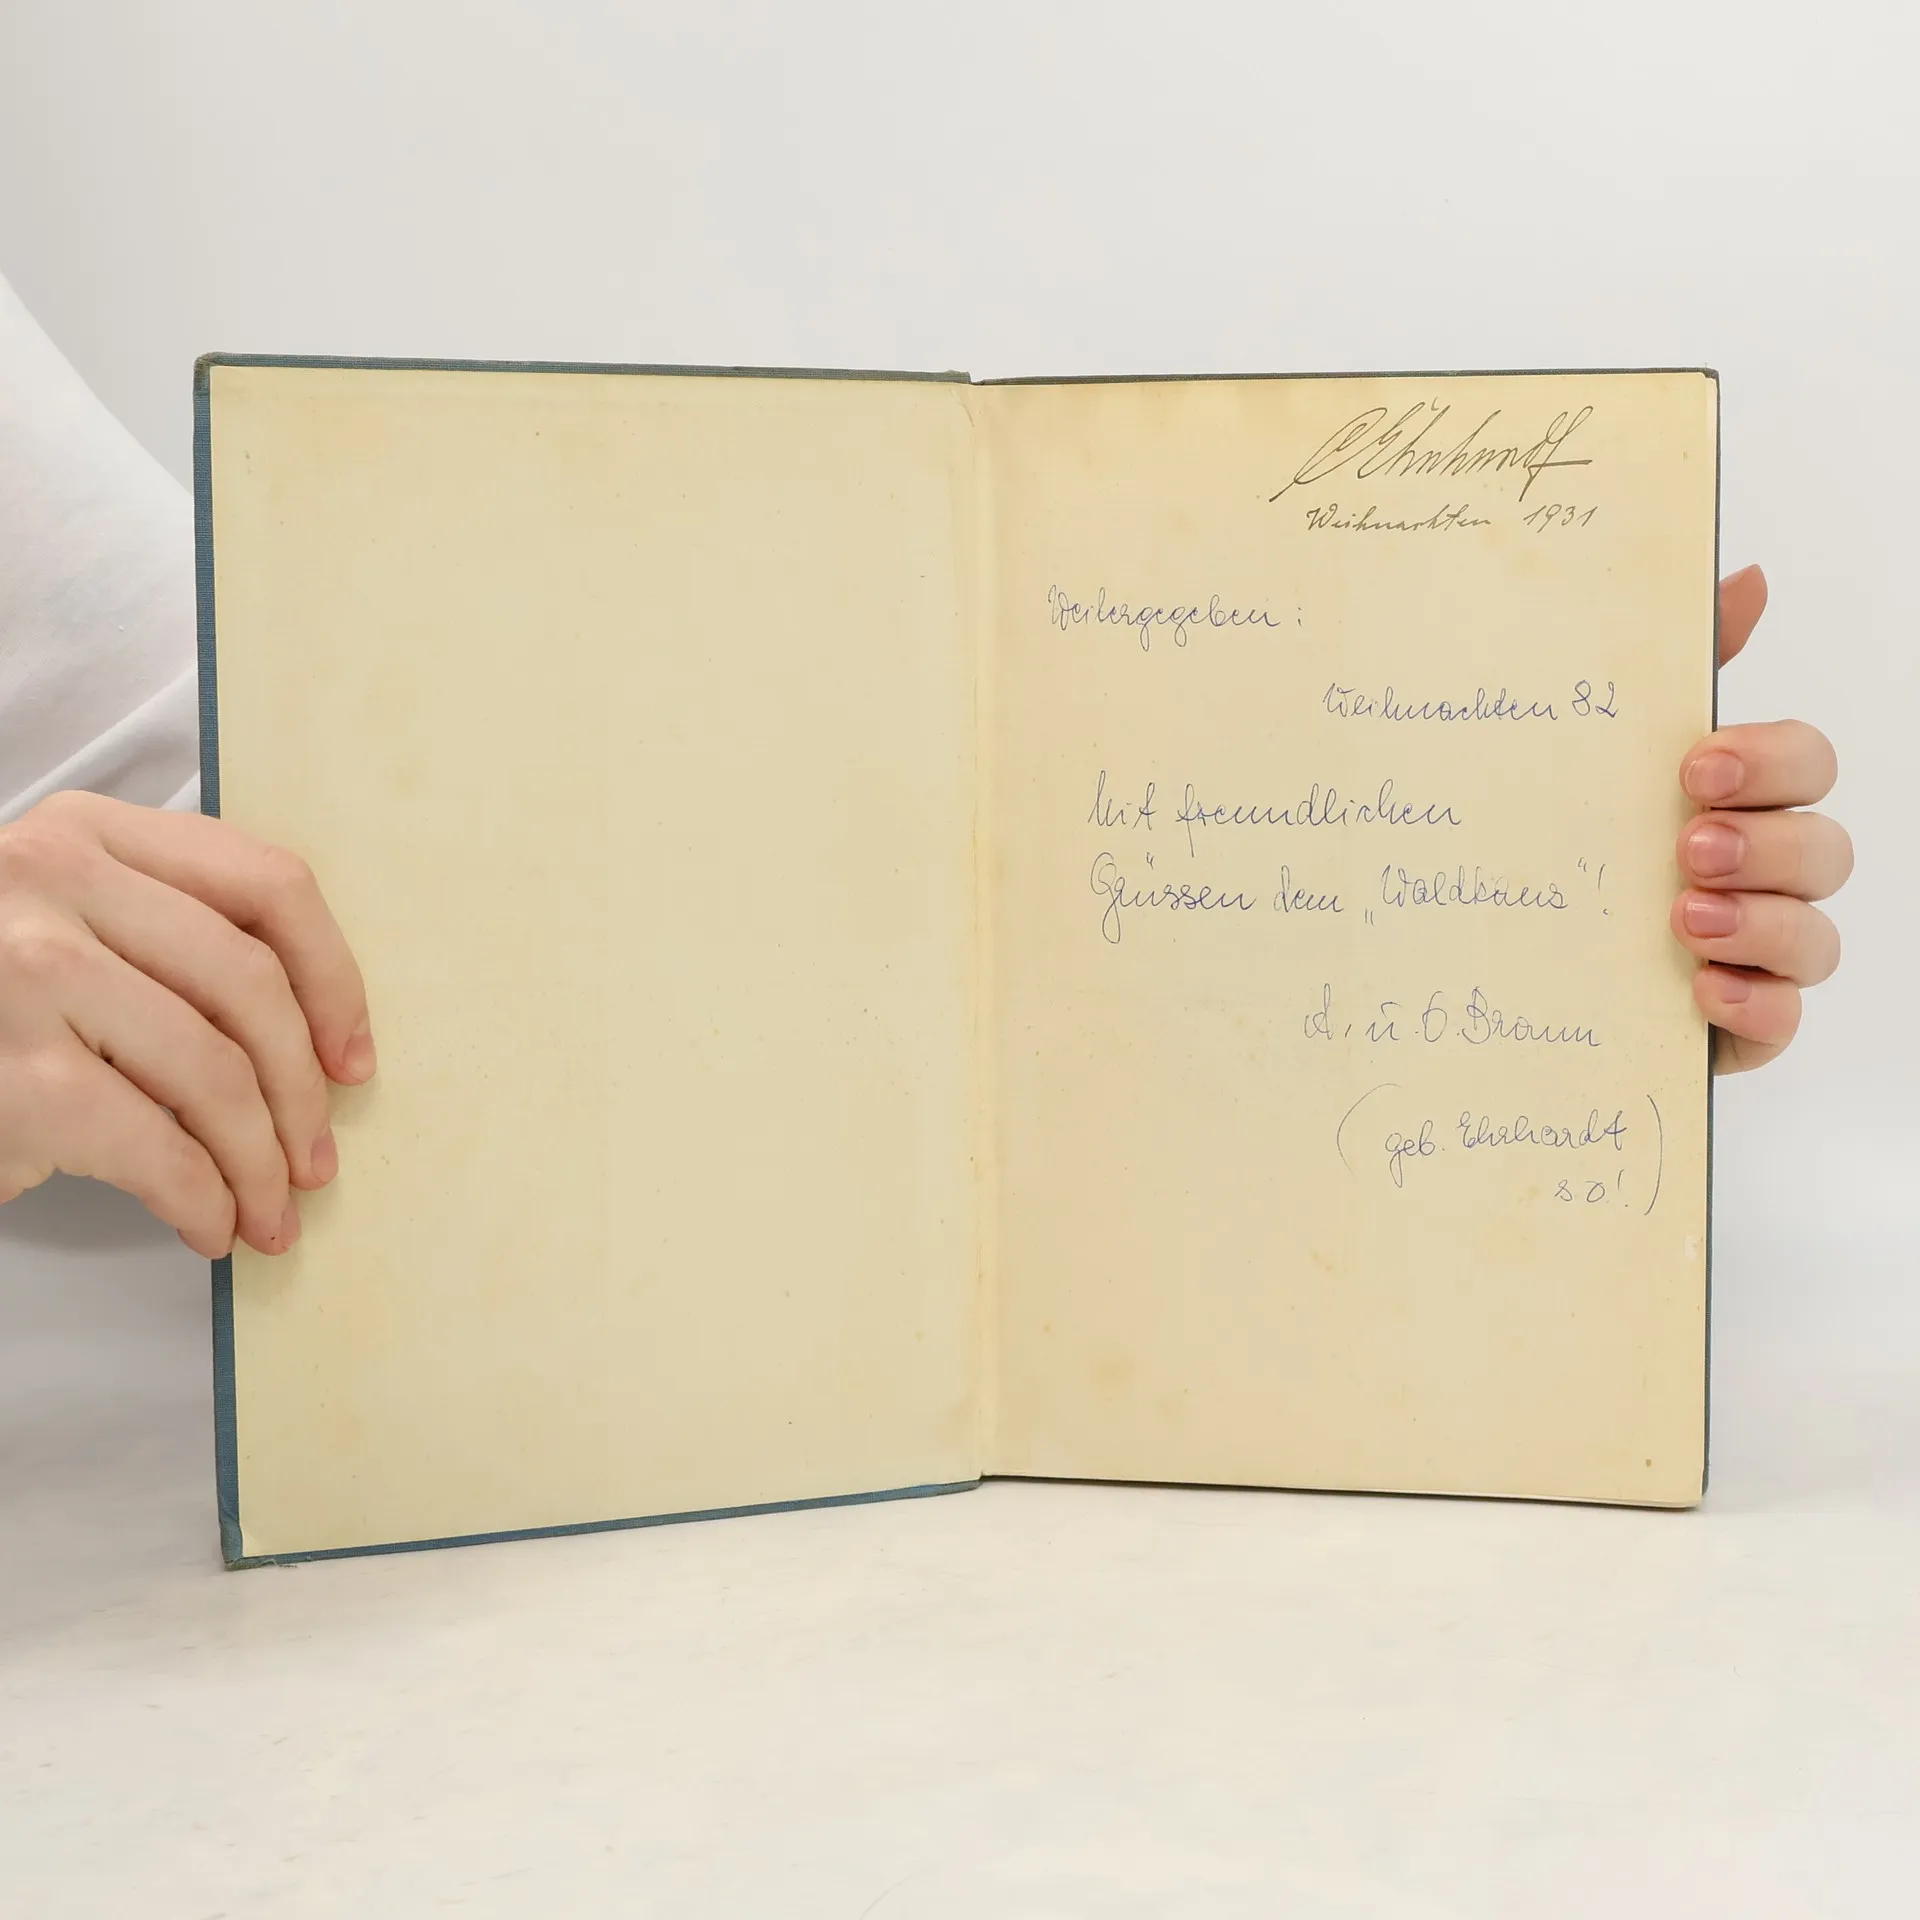 Ehrhardt
Weihnachten 1931
Weitergegeben :
Weihnachten 82
Mit freundlichen
Grüssen dem „Waldkauz“!
A. u. O. Braun
(geb. Ehrhardt
so!)